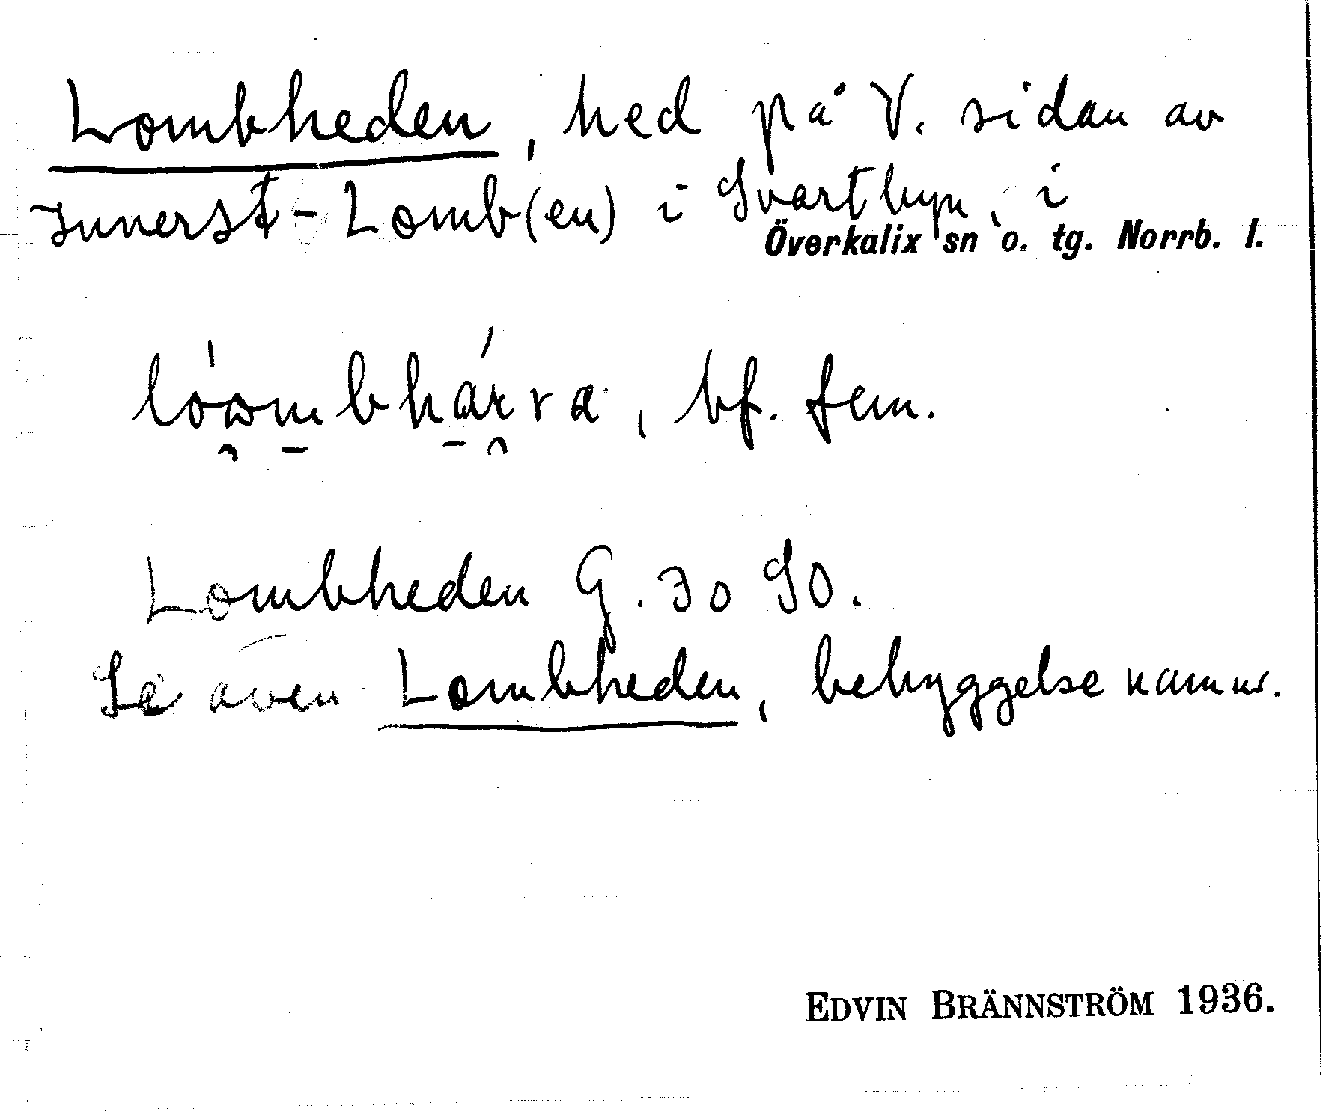 Lombheden, hed på V. sidan av
Innerst-Lomb(en) i Svartbyn, i
Överkalix sn o. tg. Norrb. l.
bf. fem.
Lombheden G. 30 SO.
Se även Lombheden, bebyggelsenamn.
EDVIN BRÄNNSTRÖM 1936.